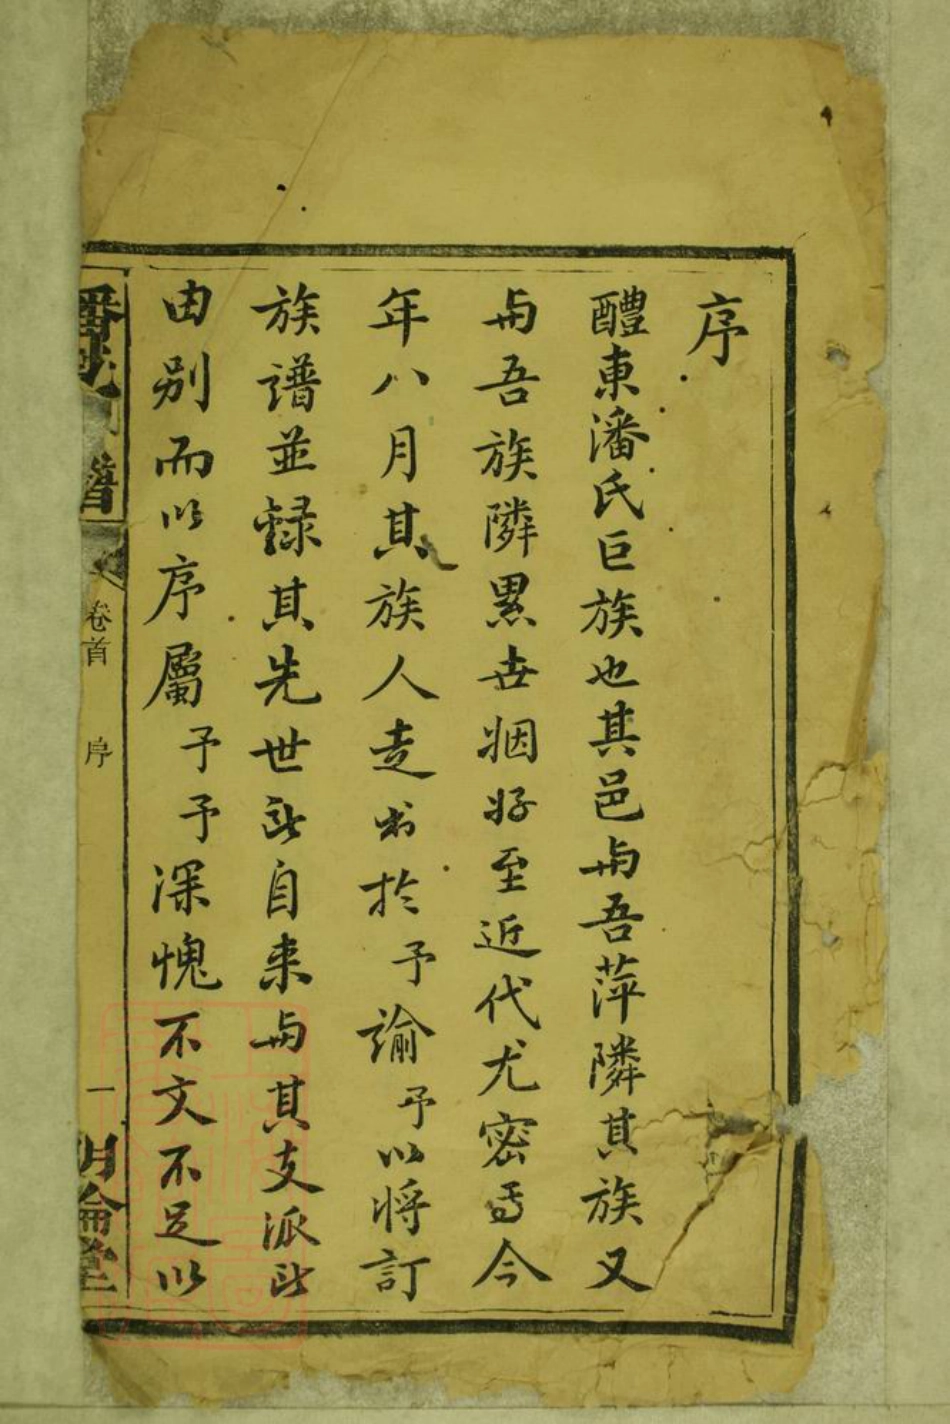 序
醴東潘氏巨族也其邑与吾萍隣其族又
与吾族隣累世姻好至近代尤密焉今
年八月其族人走书於予諭予以將訂
族譜並録其先世所自来与其支派所
由别而以序屬予予深愧不文不足以
潘氏
譜
卷首
序
一
明倫堂